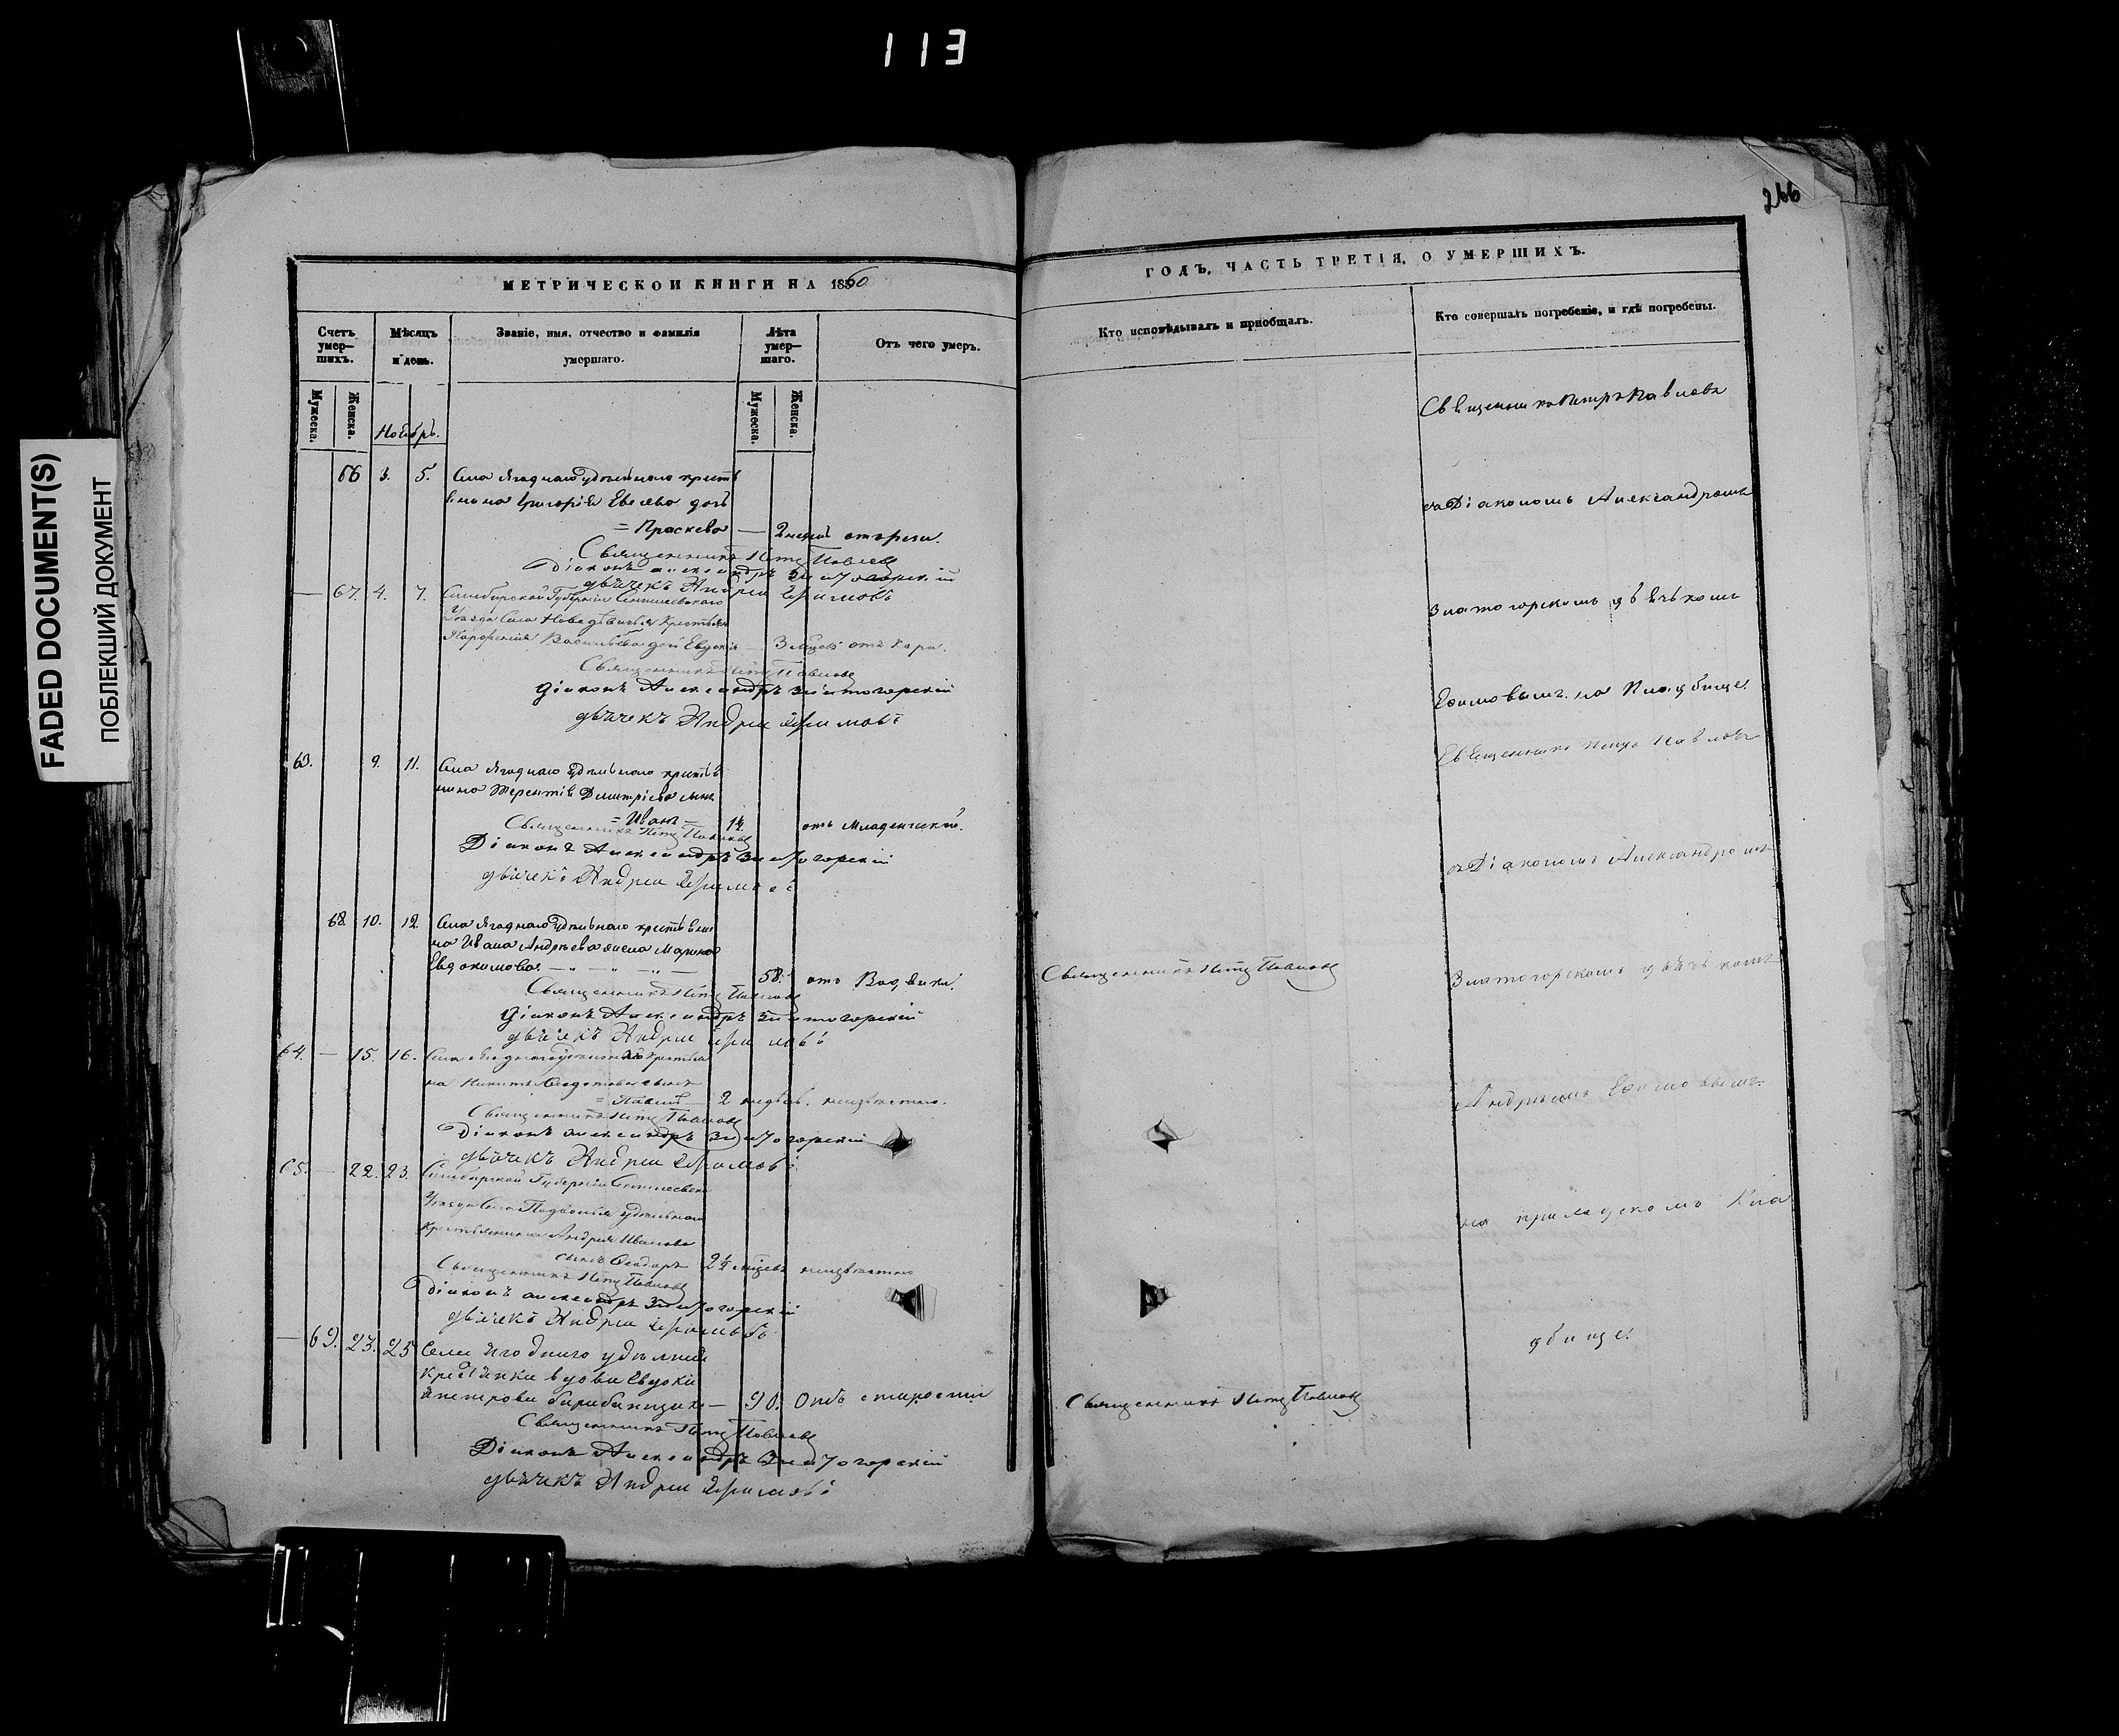 113
FADED DOCUMENT(S)
ПОБЛЕКШИЙ ДОКУМЕНТ
266
МЕТРИЧЕСКОЙ КНИГИ НА 1860
Счетъ умер—шихъ.
Мѣсяцъ и день.
Званіе, имя, отчество и фамилія умершаго.
Лѣта умер—шаго.
Отъ чего умеръ.
Мужеска.
Женска.
Ноябрь.
Мужеска.
Женска.
66 3. 5. Села Ягоднаго удѣльнаго крестья
нина Григорія Евсеева дочь
= Праскева — 2 недѣль
Священникъ Петръ Павловъ
Діаконъ Александръ Златогорскій
дьячекъ Андрей Ефимовъ
— 67. 4. 7. Симбирской Губерніи Сенгилеевскаго
Уѣзда Села Новодѣвичья Крестьян
Васильева доч Евдокія — 3 отъ кори.
Священникъ Петръ Павловъ
Діаконъ Александръ Златогорскій
дьячекъ Андрей Ефимовъ
63. 9. 11. Села Ягоднаго удѣльнаго крестья
нина Терентія Димитріева сынъ
= Иванъ — 1½ отъ Младенческой.
Священникъ Петръ Павловъ
Діаконъ Александръ Златогорскій
дьячекъ Андрей Ефимовъ
68. 10. 12. Села Ягоднаго удѣльнаго крестьяни
на Ивана Андреева жена Марина
Евдокимова — 58. отъ Водянки.
Священникъ Петръ Павловъ
Діаконъ Александръ Златогорскій
дьячекъ Андрей Ефимовъ
64. — 15. 16. Села Ягоднаго удѣльнаго Крестьяни
на Никиты Федотова сынъ
= Павелъ — 2 недѣль. неизвѣстно.
Священникъ Петръ Павловъ
Діаконъ Александръ Златогорскій
дьячекъ Андрей Ефимовъ
65. — 22. 23. Симбирской Губерніи Сенгилеевскаго
Уѣзда Села удѣльнаго
Крестьянина Андрея Иванова
сынъ Феодоръ 2½ мѣсяцъ неизвѣстно
Священникъ Петръ Павловъ
Діаконъ Александръ Златогорскій
дьячекъ Андрей Ефимовъ
— 69. 23. 25 Села Ягоднаго удѣльной
крестьянки вдовы Евдокія
Петрова — 90. Отъ старости
Священникъ Петръ Павловъ
Діаконъ Александръ Златогорскій
дьячекъ Андрей Ефимовъ
ГОДЪ, ЧАСТЬ ТРЕТІЯ, О УМЕРШИХЪ.
Кто исповѣдывалъ и пріобщалъ.
Кто совершалъ погребеніе, и гдѣ погребены.
Священникъ Петръ Павловъ
Священникъ Петръ Павловъ
Священникъ Петръ Павловъ
съ Діакономъ Александромъ
Златогорскимъ дьячкомъ
Ефимовымъ. на Кладбище.
Священникъ Петръ Павловъ
съ Діакономъ Александромъ
Златогорскимъ дьячкомъ
Андреемъ Ефимовымъ.
на приходскомъ Кла
дбище.